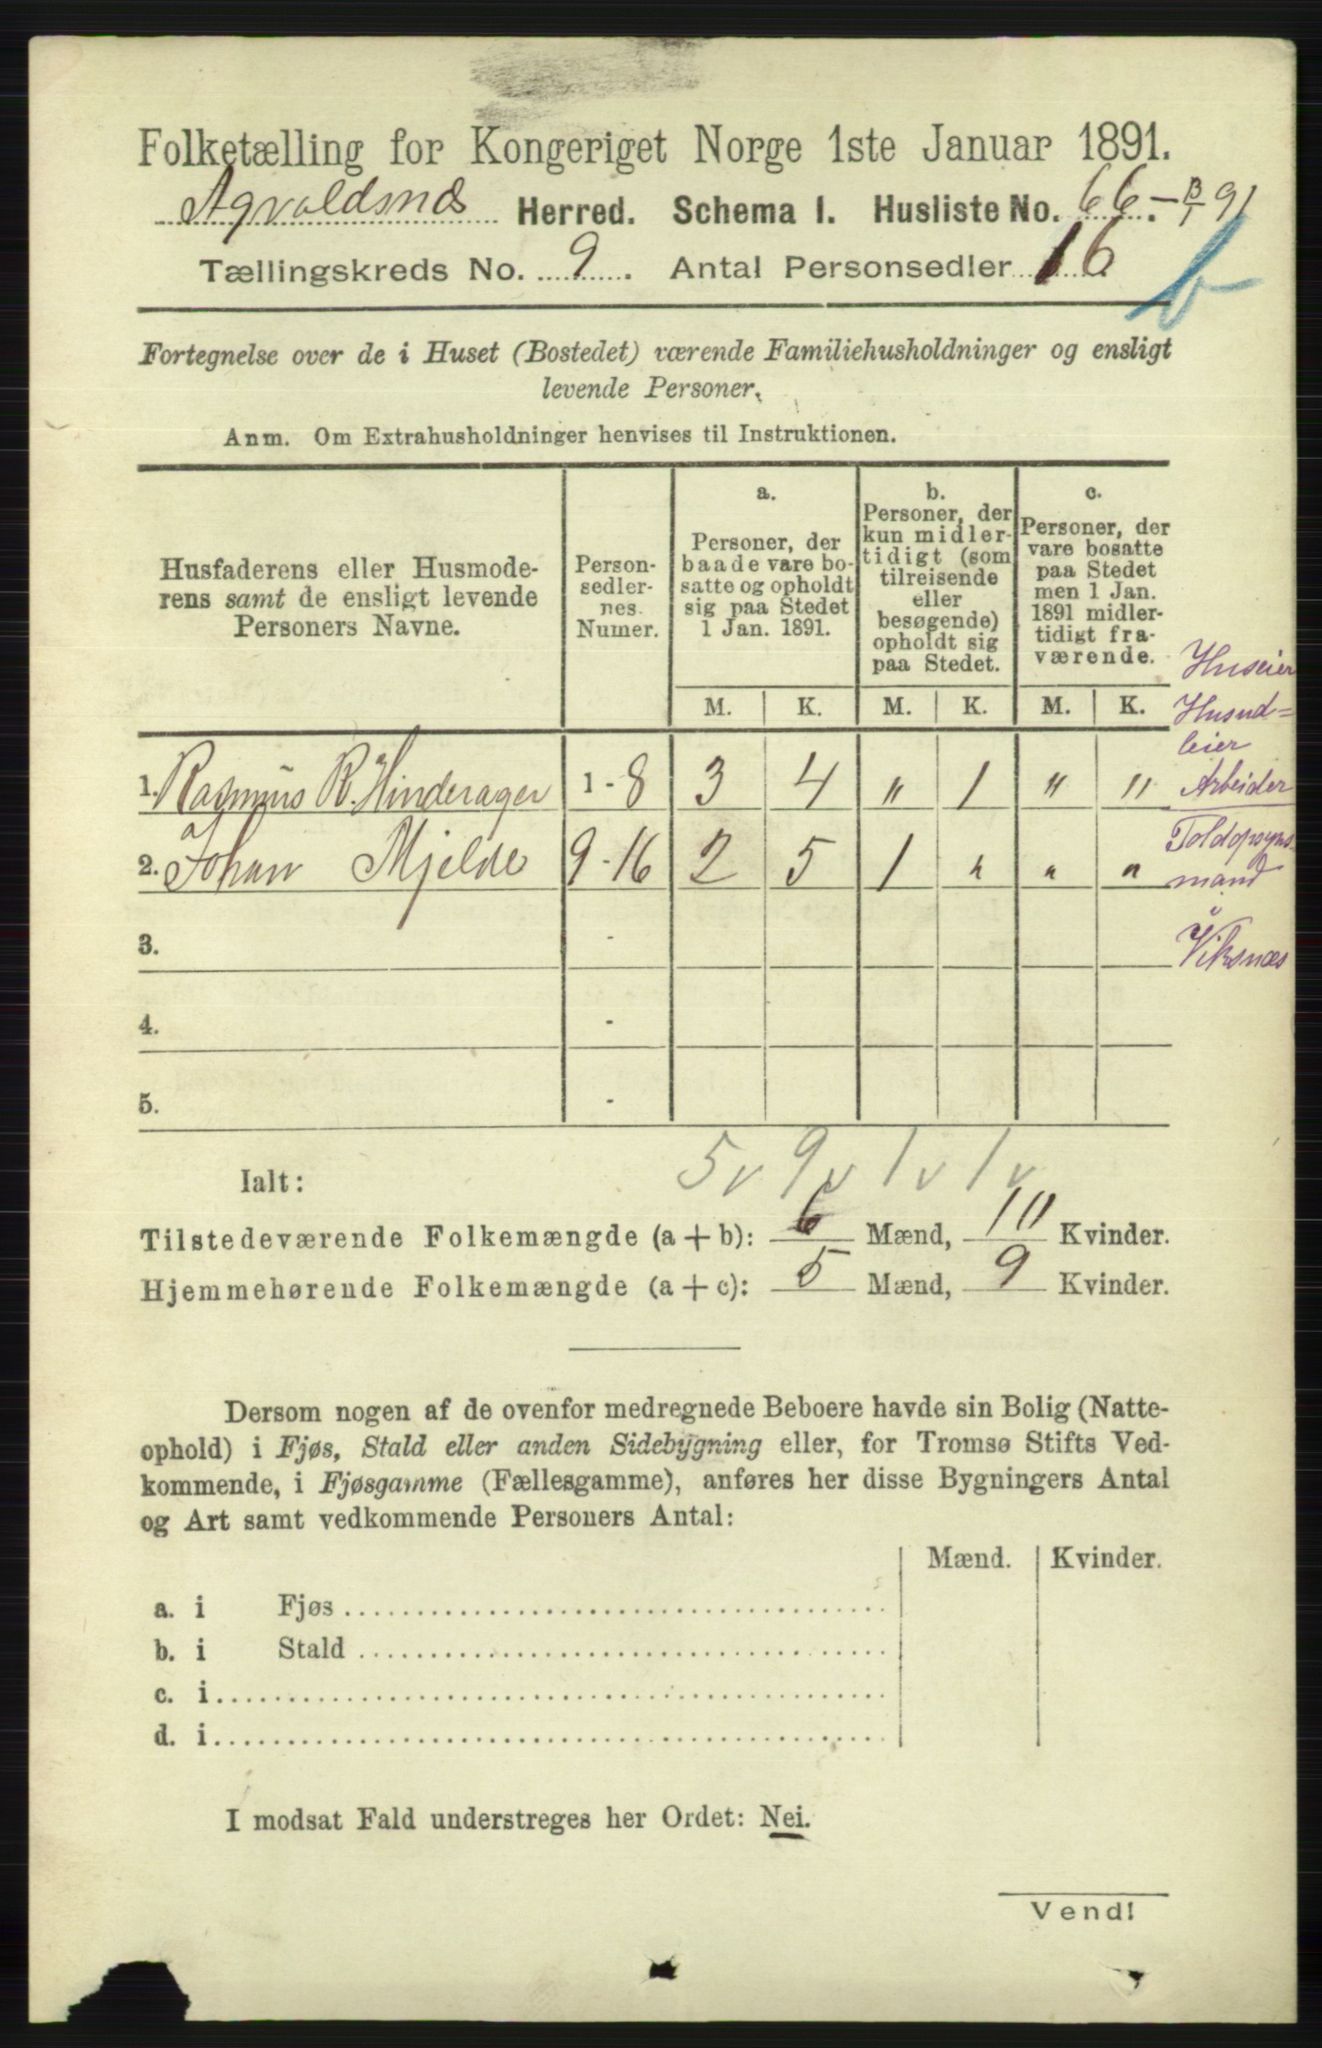 Folketælling for Kongeriget Norge 1ste Januar 1891.
Agvaldsnæs Herred. Schema 1. Husliste No. 66.
Tællingskreds No. 9. Antal Personsedler 16
b
Fortegnelse over de i Huset (Bostedet) værende Familiehusholdninger og ensligt
levende Personer.
Anm. Om Extrahusholdninger henvises til Instruktionen.
Husfaderens eller Husmode-
rens samt de ensligt levende
Personers Navne.
Person-
sedler-
nes
Numer.
a.
Personer, der
baade vare bo-
satte og opholdt
sig paa Stedet
1 Jan. 1891.
b.
Personer, der
kun midler-
tidigt (som
tilreisende
eller
besøgende)
opholdt sig
paa Stedet.
c.
Personer, der
vare bosatte
paa Stedet
men 1 Jan.
1891 midler-
tidigt fra-
værende.
M. K. M. K. M. K.
Huseier
Husud=
leier
Arbeider
1. Rasmus R. Hinderager 1 - 8 3 4 " 1 " "
2. Johan Mjelde 9 - 16 2 5 1 " " "
Toldopsyns-
mand
i
Viksnæs
3. -
4. -
5. -
Ialt: 5 v 9 v 1 v 1 v
Tilstedeværende Folkemængde (a + b): 6 Mænd, 10 Kvinder.
Hjemmehørende Folkemængde (a + c): 5 Mænd, 9 Kvinder.
Dersom nogen af de ovenfor medregnede Beboere havde sin Bolig (Natte-
ophold) i Fjøs, Stald eller anden Sidebygning eller, for Tromsø Stifts Ved-
kommende, i Fjøsgamme (Fællesgamme), anføres her disse Bygningers Antal
og Art samt vedkommende Personers Antal:
Mænd. Kvinder.
a. i Fjøs
b. i Stald
c. i
d. i
I modsat Fald understreges her Ordet: Nei.
Vend!